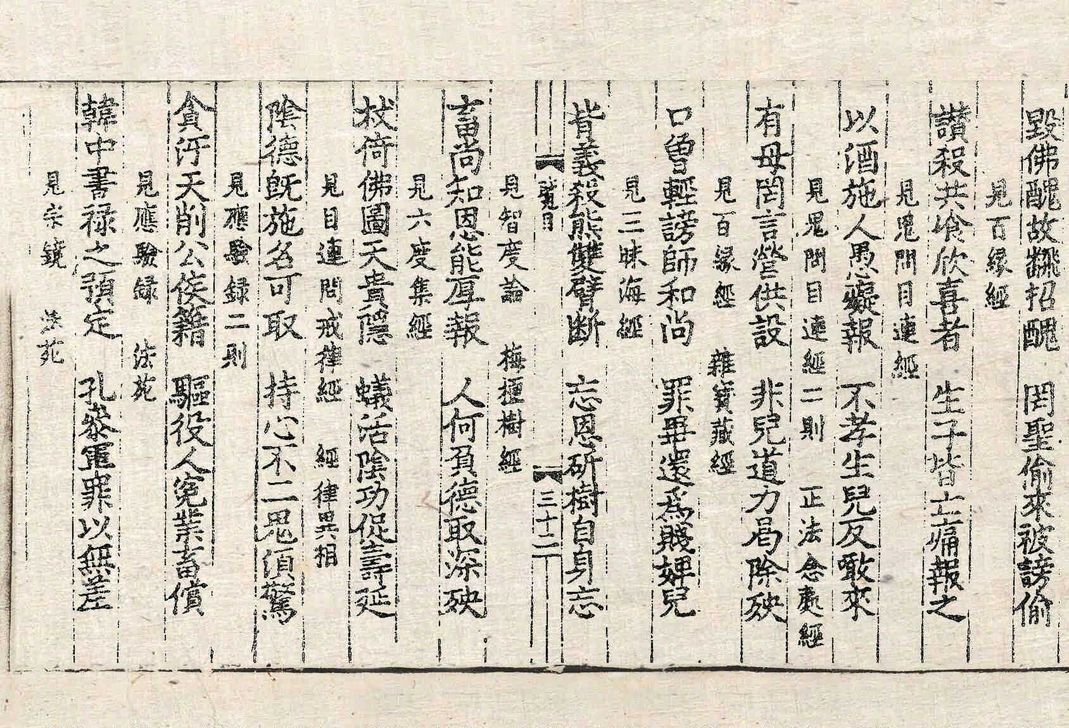 毀佛醜故飜招醜　罔聖偷來被謗偷
見百緣經
讃殺共飡欣喜者　生子皆亡痛報之
見鬼問目連經
以酒施人愚癡報　不孝生兒反噉來
見鬼問目連經二則　正法念處經
有母罔言營供設　非兒道力局除殃
見百緣經　雜寶藏經
口曾輕謗師和尚　罪畢還爲賤婢兒
見三昧海經
背義殺熊雙臂断　忘恩斫樹自身忘
三十二
見智度論　栴檀樹經
畜尚知恩能厚報　人何負德取深殃
見六度集經
杖倚佛圖天貴隱　蟻活陰功促壽延
見目連問戒律經　經律異相
陰德既施名可取　持心不二鬼須驚
見應驗録二則
貪汙天削公侯籍　驅役人寃業畜償
見應驗録　法苑
韓中書禄之預定　孔叅軍罪以無差
見宗鏡　法苑